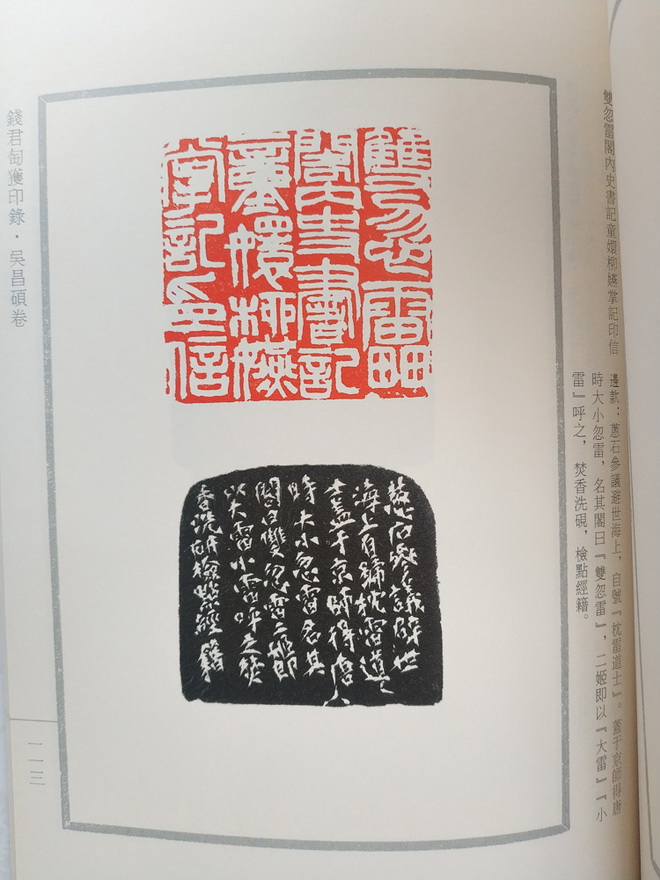 雙忽雷閣內史書記童嬛柳嬿掌記印信
邊款：蔥石參議避世海上，自號『枕雷道士』。蓋于京師得唐
時大小忽雷，名其閣曰『雙忽雷』，二姬即以『大雷』『小
雷』呼之，焚香洗硯，檢點經籍。
雙忽雷
閣內史書記
童嬛柳嬿
掌記印信
蔥石參議辟世
海上自號枕雷道
士蓋于京師得唐
時大小忽雷名其
閣曰雙忽雷二姬即
以大雷小雷呼之焚
香洗研檢點經籍
錢君匋獲印錄·吳昌碩卷
一一三